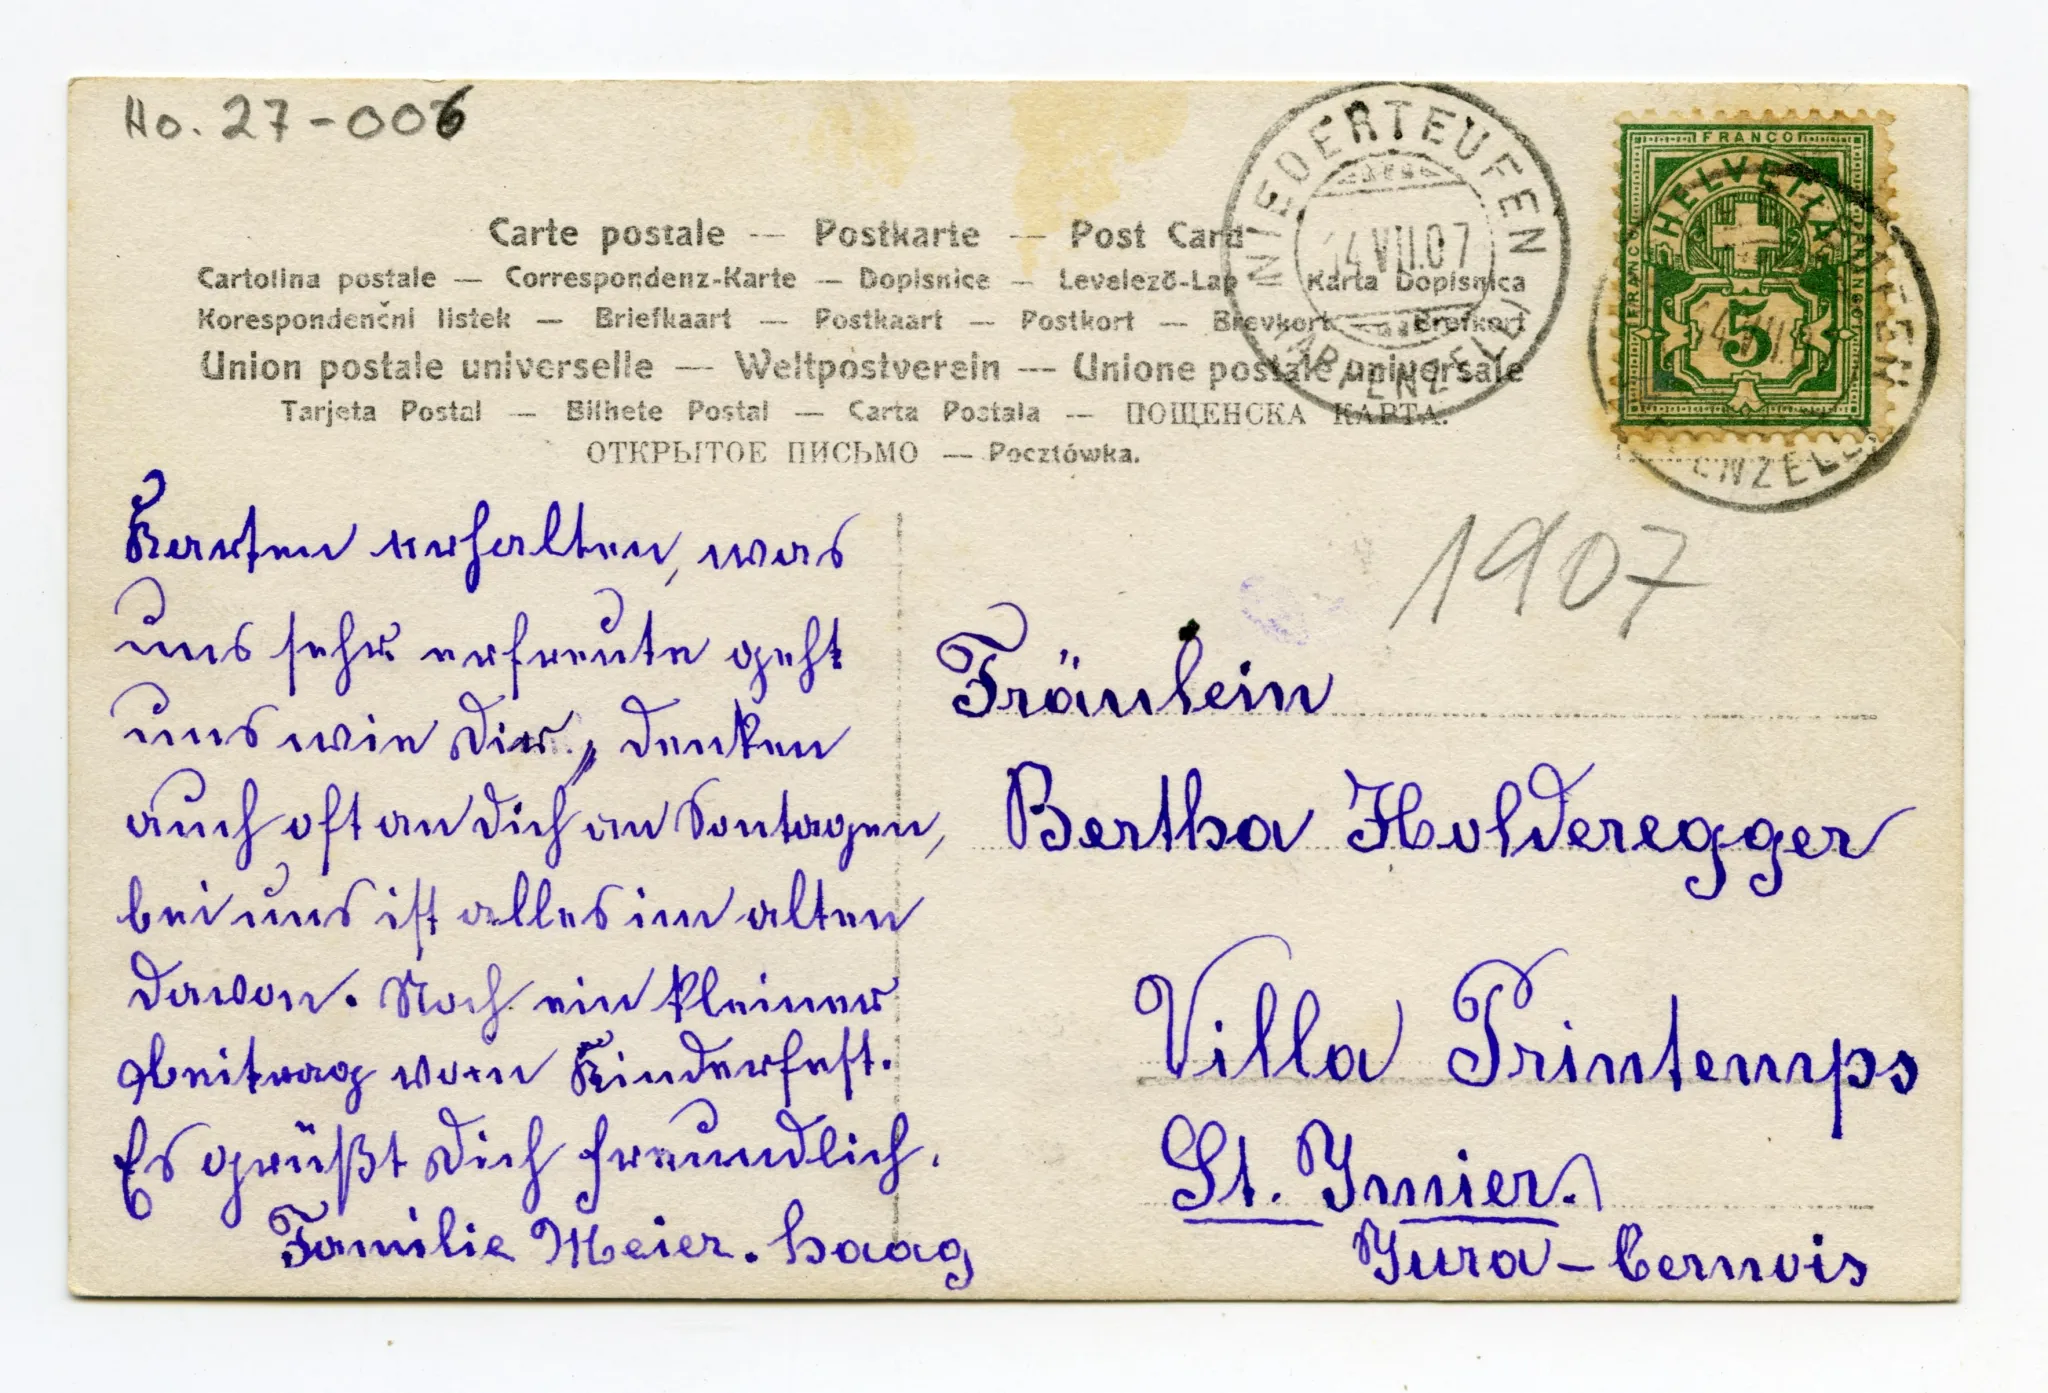 Ho. 27-006
Carte postale — Postkarte — Post Card
Cartolina postale — Correspondenz-Karte — Dopisnice — Levelező-Lap — Karta Dopisnica
Korespondenční listek — Briefkaart — Postkaart — Postkort — Brevkort — Brefkort
Union postale universelle — Weltpostverein — Unione postale universale
Tarjeta Postal — Bilhete Postal — Carta Postala — ПОЩЕНСКА КАРТА.
ОТКРЫТОЕ ПИСЬМО — Pocztówka.
NIEDERTEUFEN
14.VII.07
(APPENZELL)
FRANCO
FRANCO
FRANCO
HELVETIA
5
1907
Karten erhalten, was
uns sehr erfreute geht
uns wie Dir, denken
auch oft an Dich an Sontagen,
bei uns ist alles im alten
davon. Noch ein kleiner
Beitrag vom Kinderfest.
Es grüßt Dich freundlich.
Familie Meier. Haag
Fräulein
Bertha Holderegger
Villa Printemps
St. Imier.
Jura - bernois